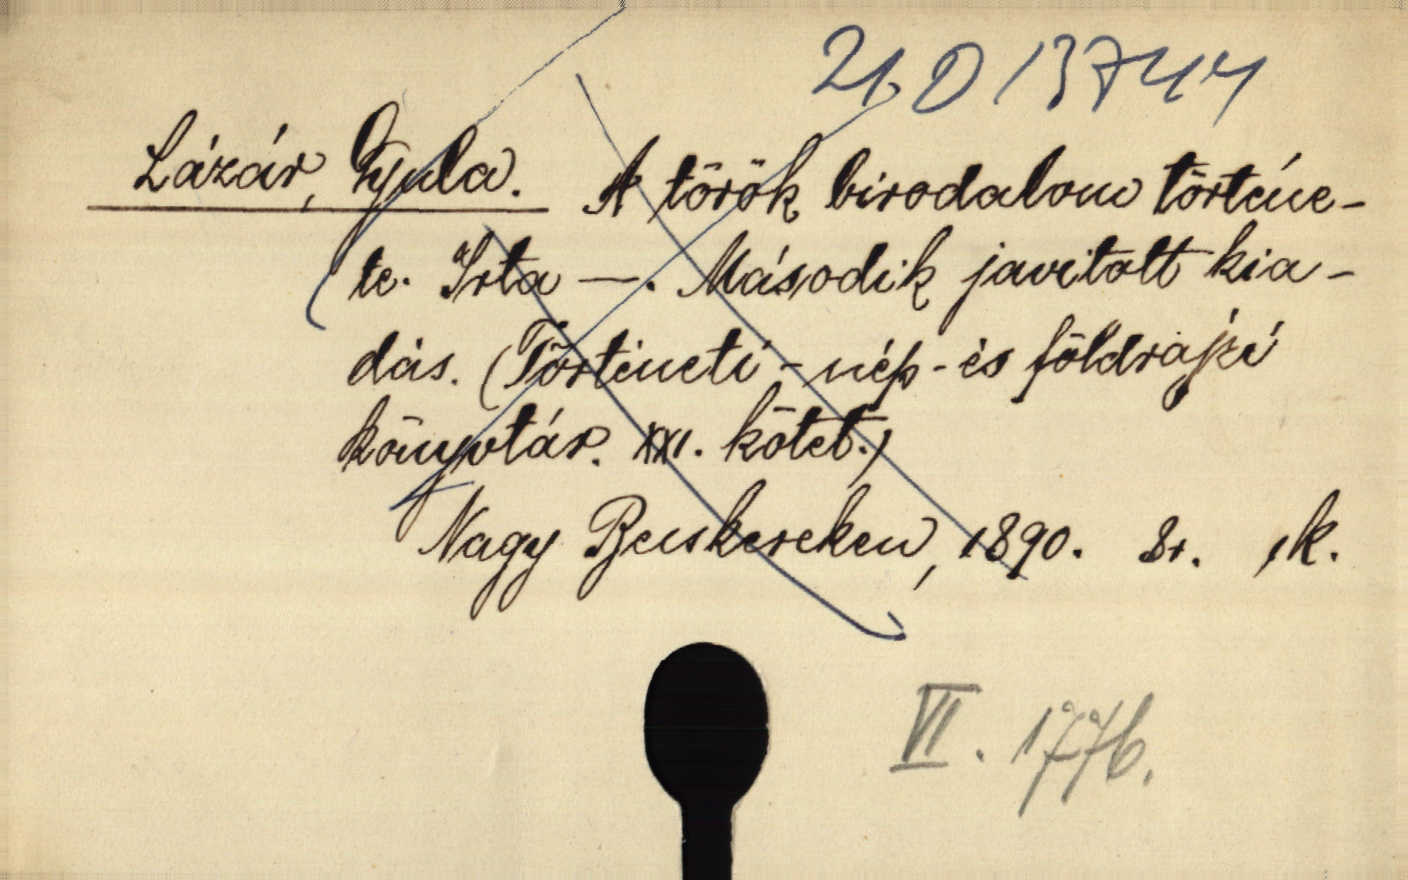 21 D 13744
Lázár, Gyula. A török birodalom történe-
te. Irta —. Második javitott kia-
dás. (Történeti - nép - és földrajzi
könyvtár. XXI. kötet.)
Nagy Becskereken, 1890. 8r. 1k.
VI. 1776.